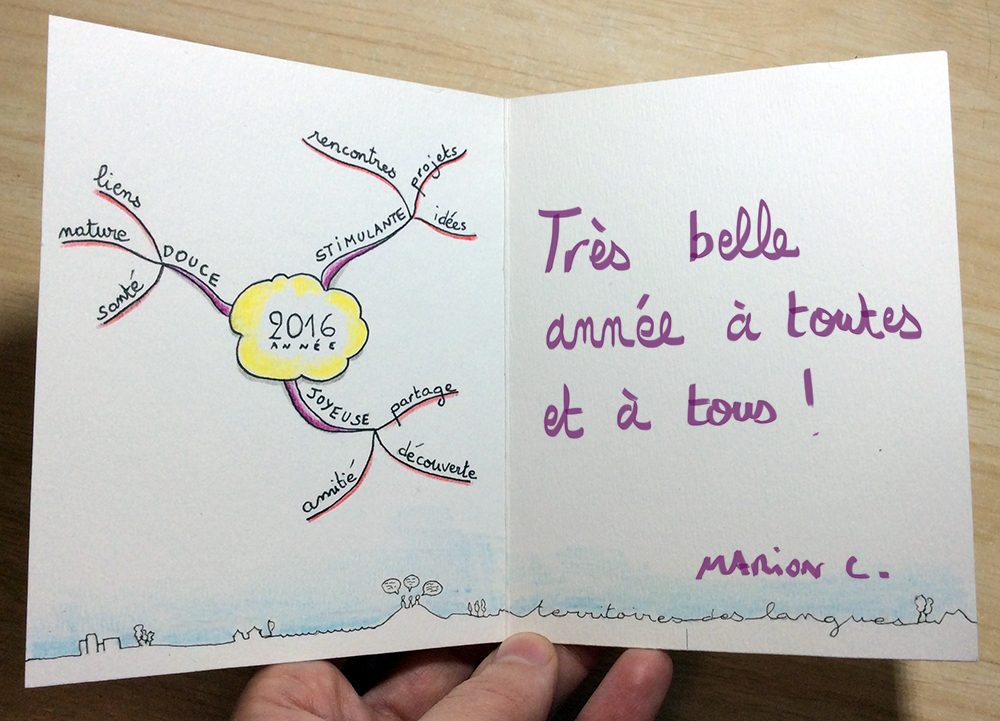 rencontres
projets
idées
STiMULANTE
liens
nature
santé
DOUCE
2016
ANNÉE
JOYEUSE
partage
découverte
amitié
Très belle
année à toutes
et à tous !
MARiON C.
territoires des langues